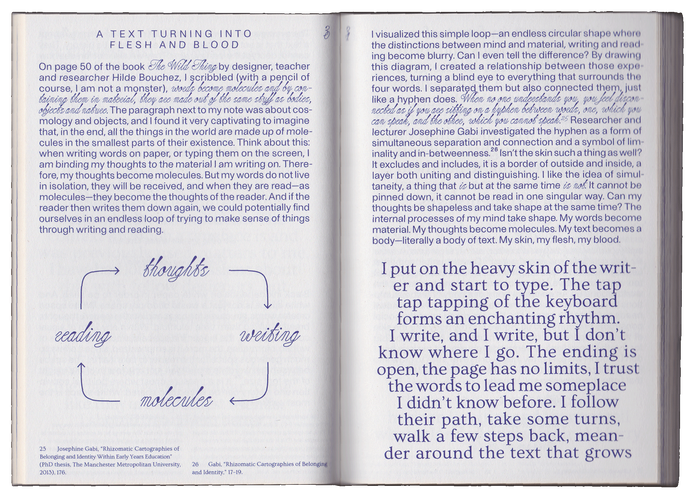 A TEXT TURNING INTO
FLESH AND BLOOD
On page 50 of the book The Wild Thing by designer, teacher
and researcher Hilde Bouchez, I scribbled (with a pencil of
course, I am not a monster), words become molecules and by con-
taining them in material, they are made out of the same stuff as bodies,
objects and nature. The paragraph next to my note was about cos-
mology and objects, and I found it very captivating to imagine
that, in the end, all the things in the world are made up of mole-
cules in the smallest parts of their existence. Think about this:
when writing words on paper, or typing them on the screen, I
am binding my thoughts to the material I am writing on. There-
fore, my thoughts become molecules. But my words do not live
in isolation, they will be received, and when they are read—as
molecules—they become the thoughts of the reader. And if the
reader then writes them down again, we could potentially find
ourselves in an endless loop of trying to make sense of things
through writing and reading.
thoughts
reading
writing
molecules
25 Josephine Gabi, "Rhizomatic Cartographies of
Belonging and Identity Within Early Years Education"
(PhD thesis, The Manchester Metropolitan University,
2013), 176.
26 Gabi, "Rhizomatic Cartographies of Belonging
and Identity," 17-19.
I visualized this simple loop—an endless circular shape where
the distinctions between mind and material, writing and read-
ing become blurry. Can I even tell the difference? By drawing
this diagram, I created a relationship between those expe-
riences, turning a blind eye to everything that surrounds the
four words. I separated them but also connected them, just
like a hyphen does. When no one understands you, you feel discon-
nected as if you are sitting on a hyphen between words, one, which you
can speak, and the other, which you cannot speak.25 Researcher and
lecturer Josephine Gabi investigated the hyphen as a form of
simultaneous separation and connection and a symbol of lim-
inality and in-betweenness.26 Isn't the skin such a thing as well?
It excludes and includes, it is a border of outside and inside, a
layer both uniting and distinguishing. I like the idea of simul-
taneity, a thing that is but at the same time is not. It cannot be
pinned down, it cannot be read in one singular way. Can my
thoughts be shapeless and take shape at the same time? The
internal processes of my mind take shape. My words become
material. My thoughts become molecules. My text becomes a
body—literally a body of text. My skin, my flesh, my blood.
I put on the heavy skin of the writ-
er and start to type. The tap
tap tapping of the keyboard
forms an enchanting rhythm.
I write, and I write, but I don't
know where I go. The ending is
open, the page has no limits, I trust
the words to lead me someplace
I didn't know before. I follow
their path, take some turns,
walk a few steps back, mean-
der around the text that grows